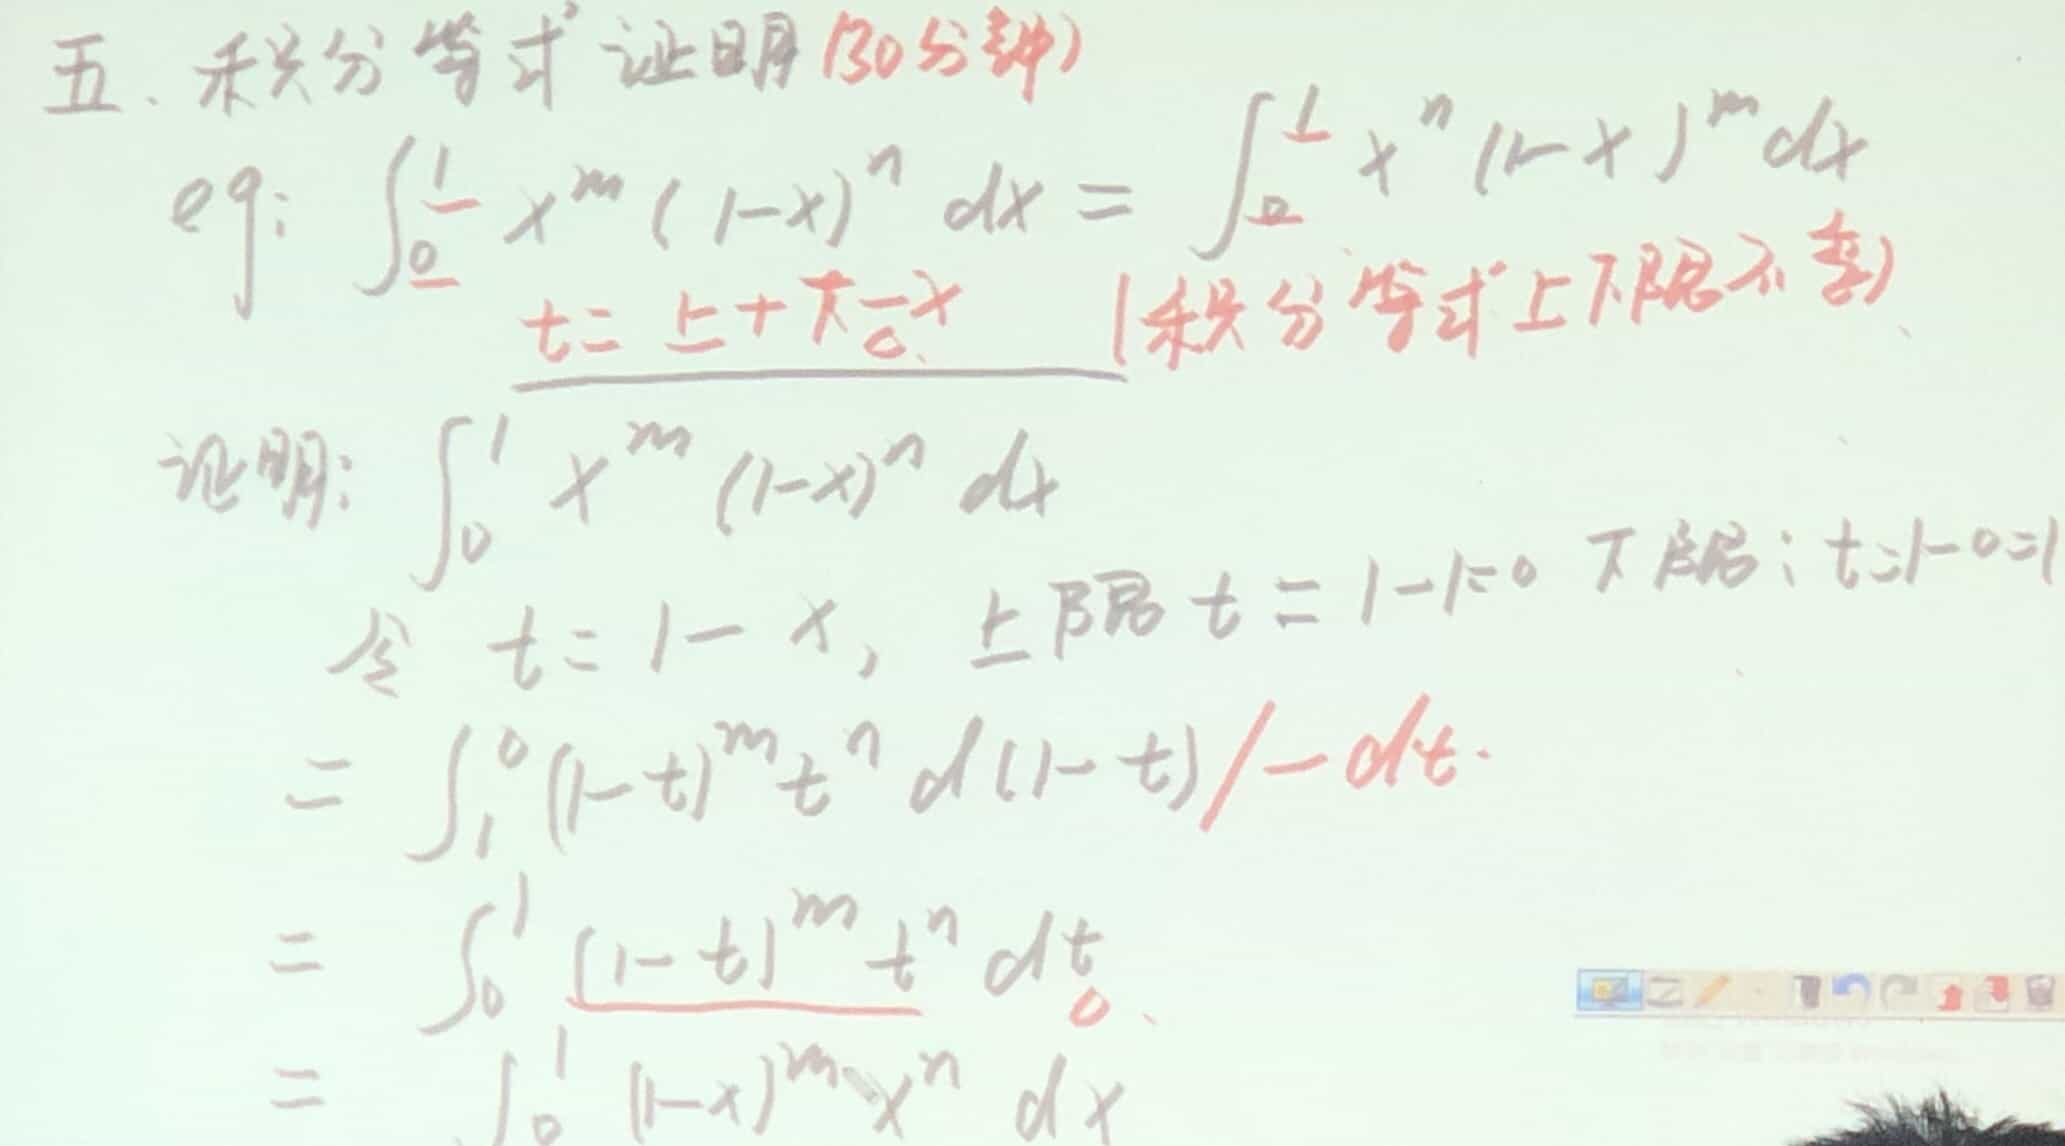 五、积分等式证明(30分钟)
eg: ∫₀¹ xᵐ(1-x)ⁿ dx = ∫₀¹ xⁿ(1-x)ᵐ dx
t = 上+下-x (积分等式上下限不变)
证明: ∫₀¹ xᵐ (1-x)ⁿ dx
令 t = 1-x, 上限 t = 1-1=0 下限: t=1-0=1
= ∫₁⁰ (1-t)ᵐ tⁿ d(1-t) / -dt.
= ∫₀¹ (1-t)ᵐ tⁿ dt
= ∫₀¹ (1-x)ᵐ xⁿ dx